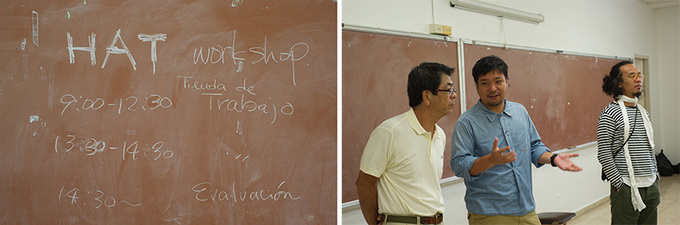 HAT workshop.
Tienda de
9:00-12.30 Trabajo
13:30-14:30 ...
14:30~ Evaluación